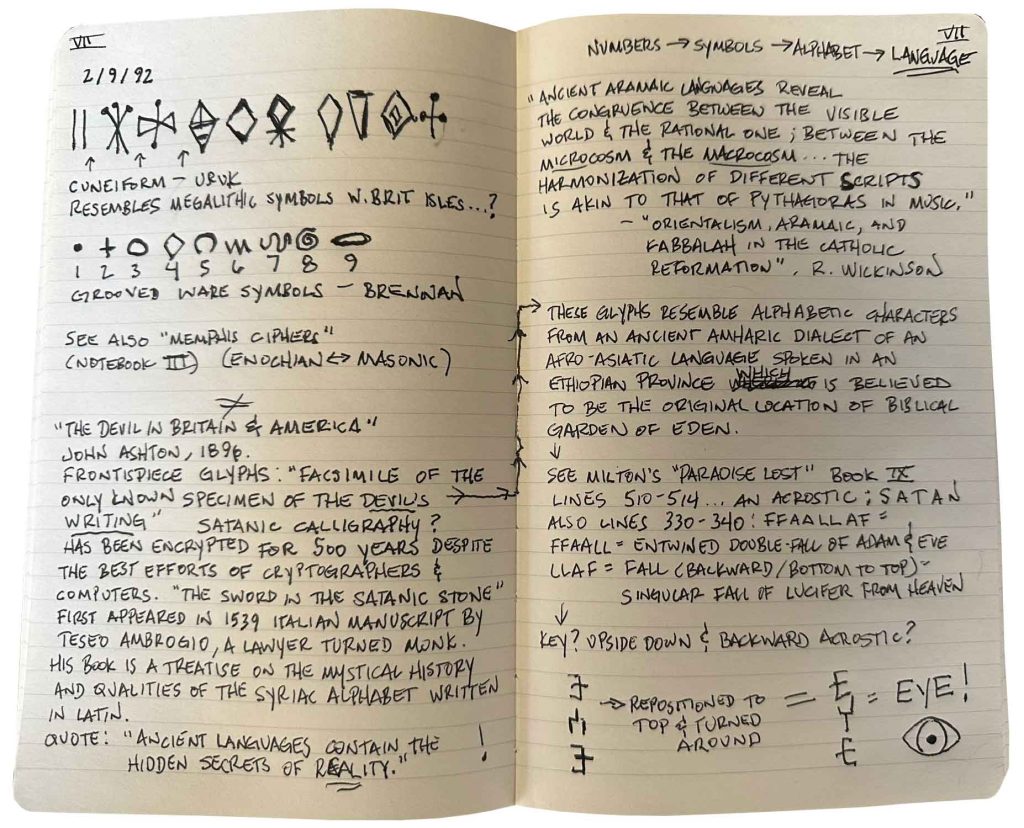 VII
2/9/92
CUNEIFORM – URUK
RESEMBLES MEGALITHIC SYMBOLS W. BRIT ISLES...?
1 2 3 4 5 6 7 8 9
GROOVED WARE SYMBOLS – BRENNAN
SEE ALSO "MEMPHIS CIPHERS"
(NOTEBOOK III) (ENOCHIAN ↔ MASONIC)
"THE DEVIL IN BRITAIN & AMERICA"
JOHN ASHTON, 1896.
FRONTISPIECE GLYPHS: "FACSIMILE OF THE
ONLY KNOWN SPECIMEN OF THE DEVIL'S
WRITING" SATANIC CALLIGRAPHY?
HAS BEEN ENCRYPTED FOR 500 YEARS DESPITE
THE BEST EFFORTS OF CRYPTOGRAPHERS &
COMPUTERS. "THE SWORD IN THE SATANIC STONE"
FIRST APPEARED IN 1539 ITALIAN MANUSCRIPT BY
TESEO AMBROGIO, A LAWYER TURNED MONK.
HIS BOOK IS A TREATISE ON THE MYSTICAL HISTORY
AND QUALITIES OF THE SYRIAC ALPHABET WRITTEN
IN LATIN.
QUOTE: "ANCIENT LANGUAGES CONTAIN THE
HIDDEN SECRETS OF REALITY." !
VII
NUMBERS → SYMBOLS → ALPHABET → LANGUAGE
"ANCIENT ARAMAIC LANGUAGES REVEAL
THE CONGRUENCE BETWEEN THE VISIBLE
WORLD & THE RATIONAL ONE; BETWEEN THE
MICROCOSM & THE MACROCOSM... THE
HARMONIZATION OF DIFFERENT SCRIPTS
IS AKIN TO THAT OF PYTHAGORAS IN MUSIC."
– "ORIENTALISM, ARAMAIC, AND
KABBALAH IN THE CATHOLIC
REFORMATION", R. WILKINSON
THESE GLYPHS RESEMBLE ALPHABETIC CHARACTERS
FROM AN ANCIENT AMHARIC DIALECT OF AN
AFRO-ASIATIC LANGUAGE SPOKEN IN AN
ETHIOPIAN PROVINCE WHICH IS BELIEVED
TO BE THE ORIGINAL LOCATION OF BIBLICAL
GARDEN OF EDEN.
↓
SEE MILTON'S "PARADISE LOST" BOOK IX
LINES 510-514... AN ACROSTIC; SATAN
ALSO LINES 330-340: FFAALLAF =
FFAALL = ENTWINED DOUBLE-FALL OF ADAM & EVE
LLAF = FALL (BACKWARD/BOTTOM TO TOP) =
SINGULAR FALL OF LUCIFER FROM HEAVEN
↓
KEY? UPSIDE DOWN & BACKWARD ACROSTIC?
→ REPOSITIONED TO
TOP & TURNED
AROUND
= E
Y
E
= EYE!